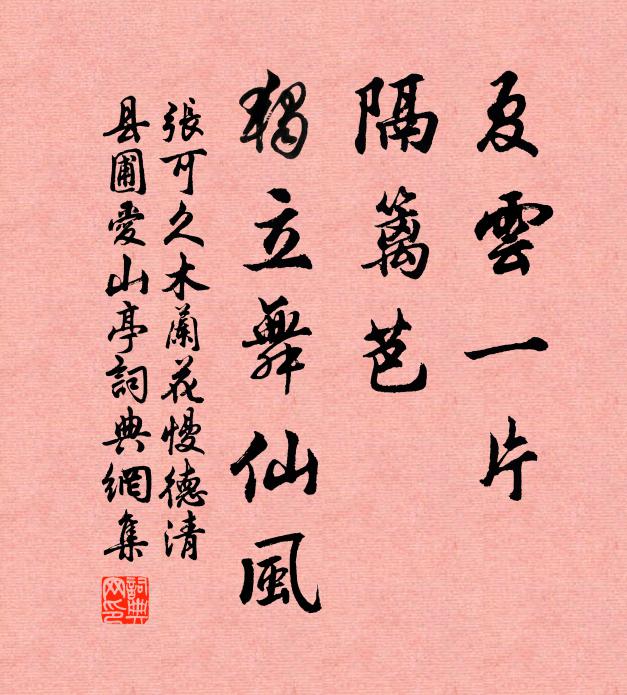 夏雲一片
隔籬芭
獨立舞仙風
張可久木蘭花慢德清
县圃愛山亭詞典網集
詞典网印